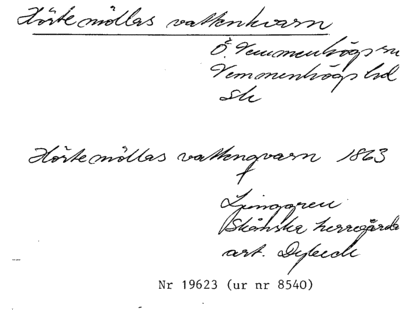 Hörte möllas vattenkvarn
Ö. Vemmenhögs sn
Vemmenhögs hd
Sk
Hörte möllas vattenqvarn 1863
Ljunggren
Skånska herregårdar
art. Dybeck
Nr 19623 (ur nr 8540)